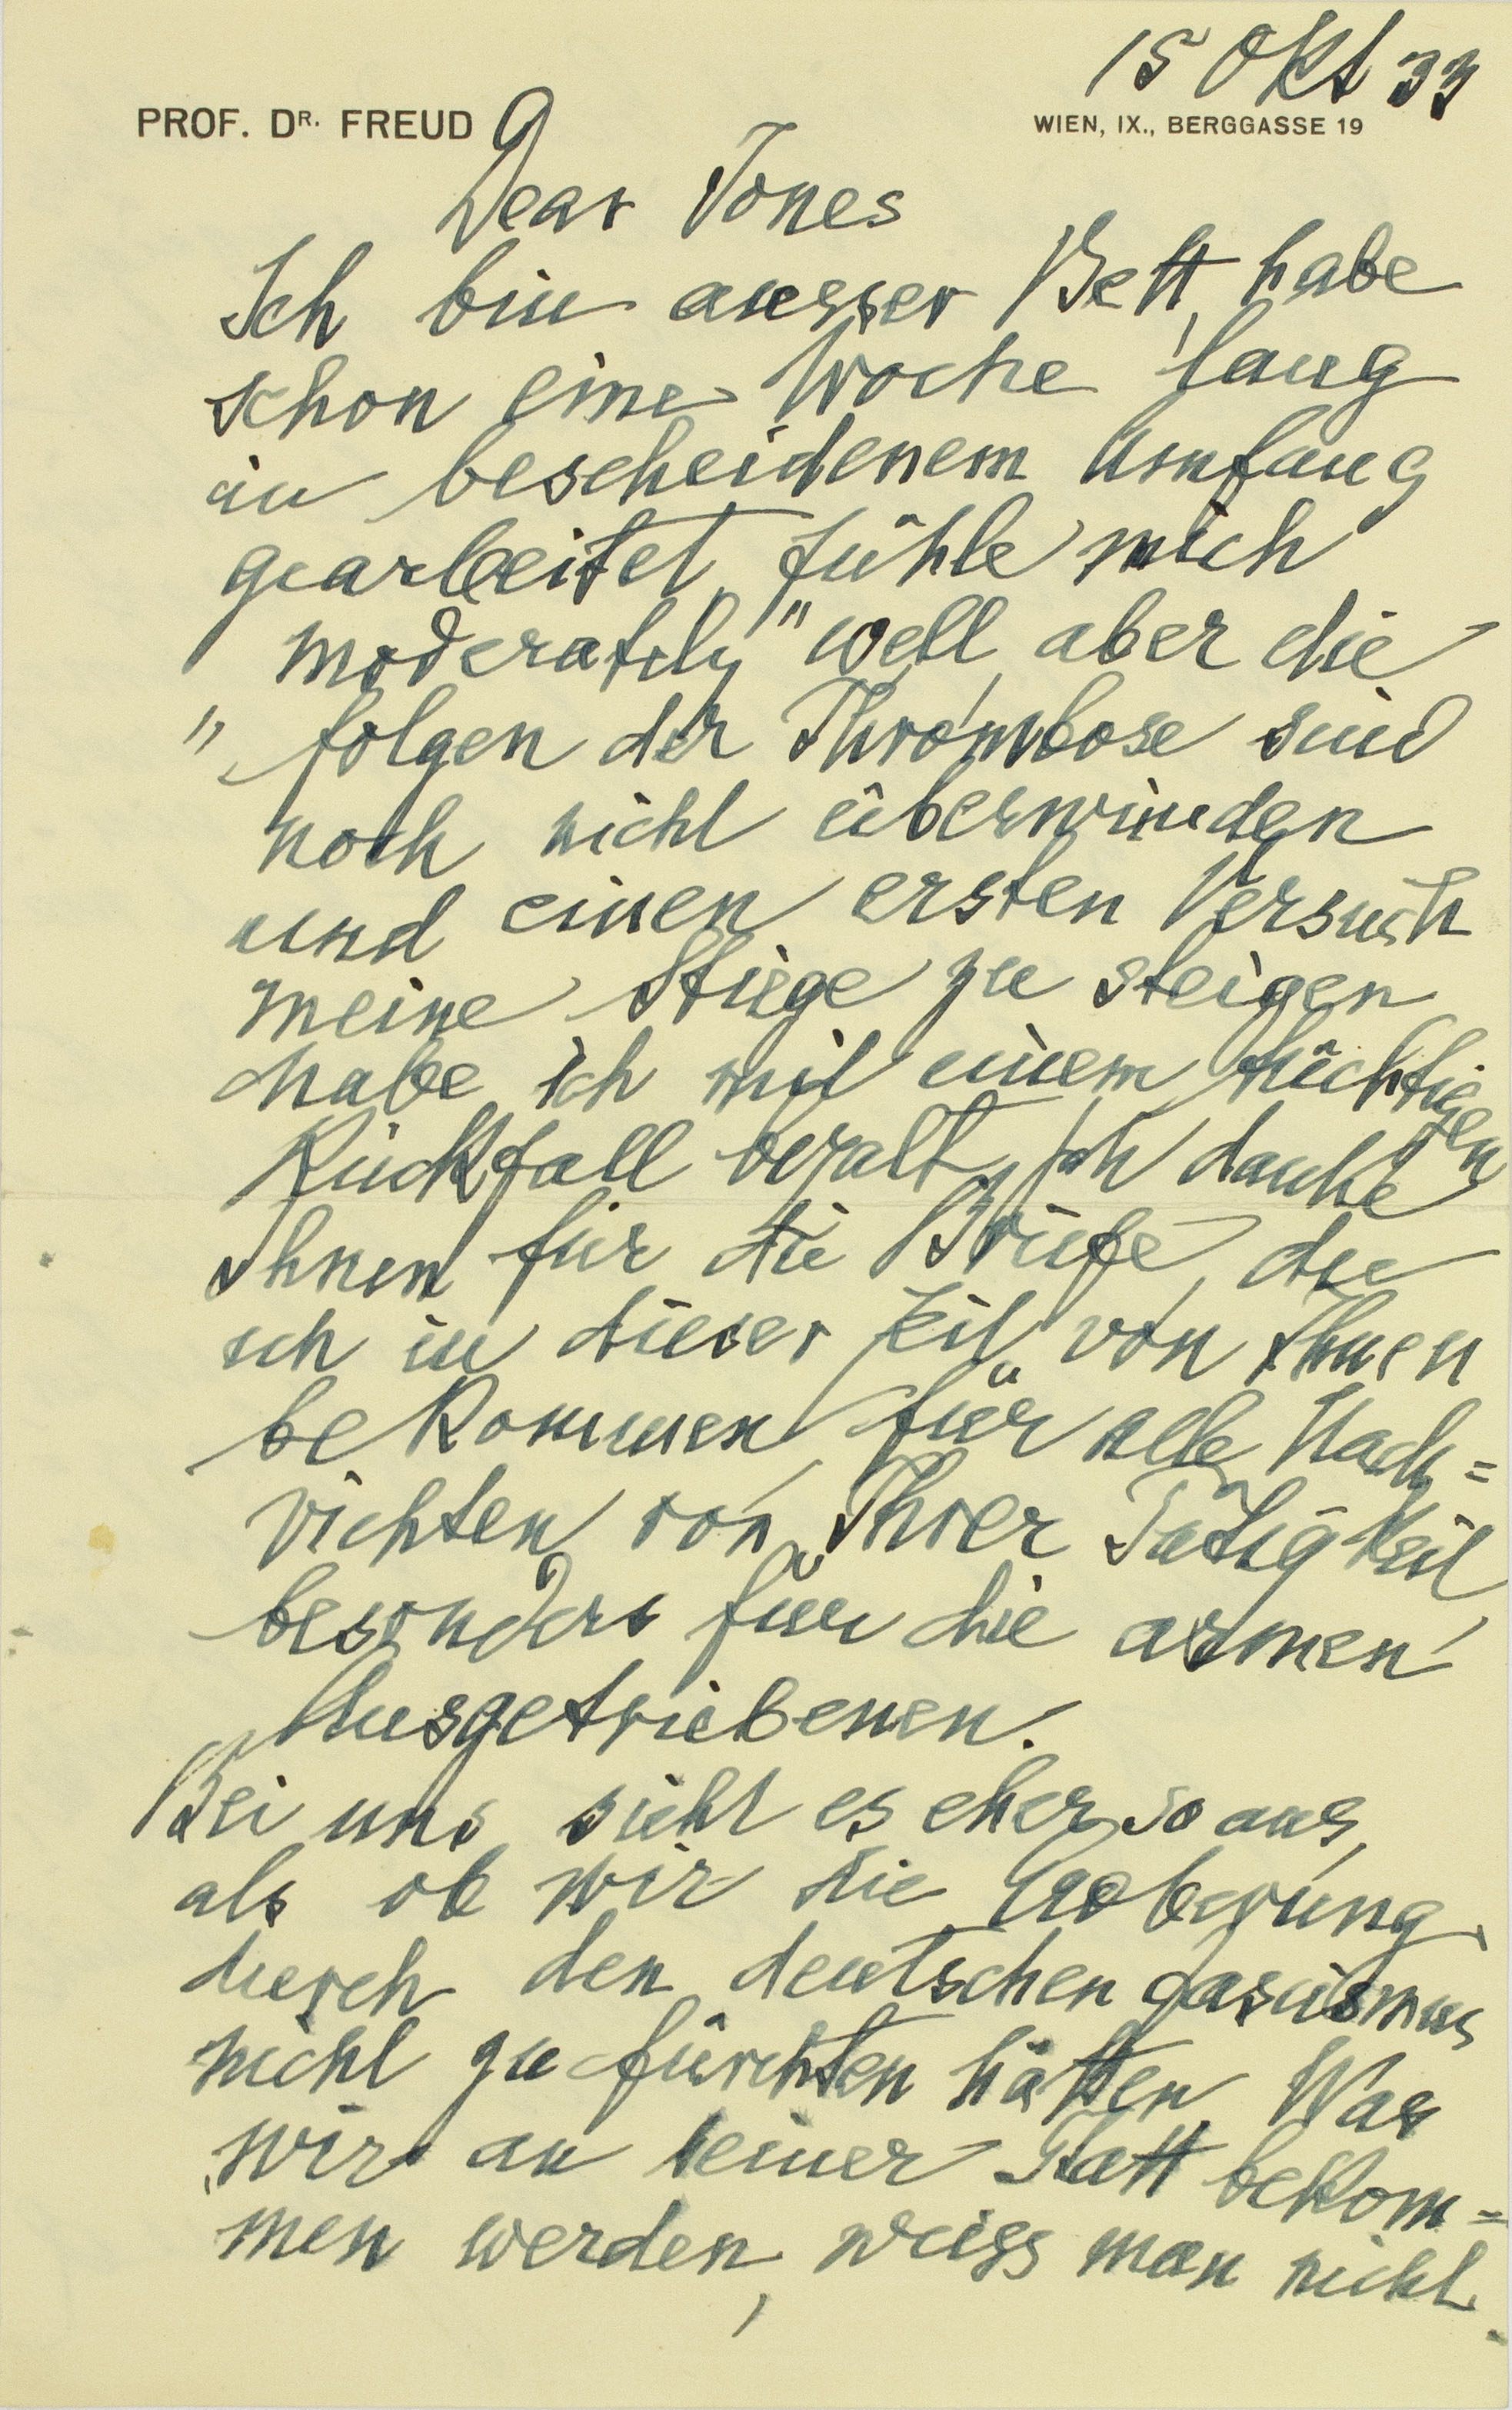 15 Okt 33
PROF. DR. FREUD
WIEN, IX., BERGGASSE 19
Dear Jones
Ich bin ausser Bett, habe
schon eine Woche lang
in bescheidenem Umfang
gearbeitet, fühle mich
„moderately" well, aber die
Folgen der Thrombose sind
noch nicht überwunden
und einen ersten Versuch
meine Stiege zu steigen
habe ich mit einem tüchtigen
Rückfall bezalt. Ich danke
Ihnen für die Briefe, die
ich in dieser Zeit von Ihnen
bekommen, für alle Nach=
richten von Ihrer Tätigkeit,
besonders für die armen
Ausgetriebenen.
Bei uns sieht es eher so aus,
als ob wir die Eroberung
durch den deutschen Fascismus
nicht zu fürchten hätten. Was
wir an seiner Statt bekom=
men werden, weiss man nicht.